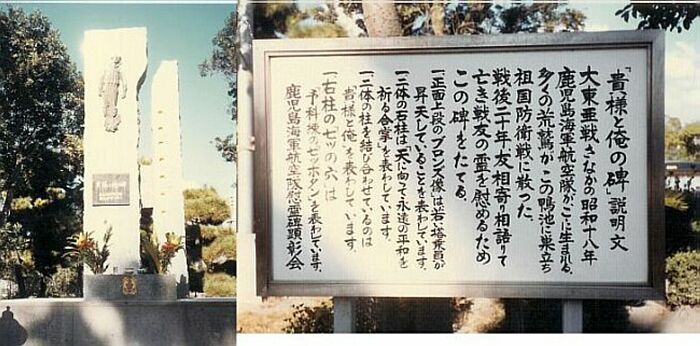 「貴様と俺の碑」説明文
大東亜戦さなかの昭和十八年
鹿児島海軍航空隊がこゝに生まれる、
多くの荒鷲がこの鴨池に巣立ち
祖国防衛戦に散った。
戦後二十年、友相寄り相語りて
亡き戦友の霊を慰めるため
この碑をたてる。
一、正面上段のブロンズ像は若い搭乗員が
昇天していることを表わしています。
一、二体の石柱は「天に向って永遠の平和を
祈る合掌」を表わしています。
一、二体の柱を結び合わせているのは
「貴様と俺」を表わしています。
一、右柱の七ッの穴は
「予科練の七ッボタン」を表わしています。
鹿児島海軍航空隊慰霊碑顕彰会